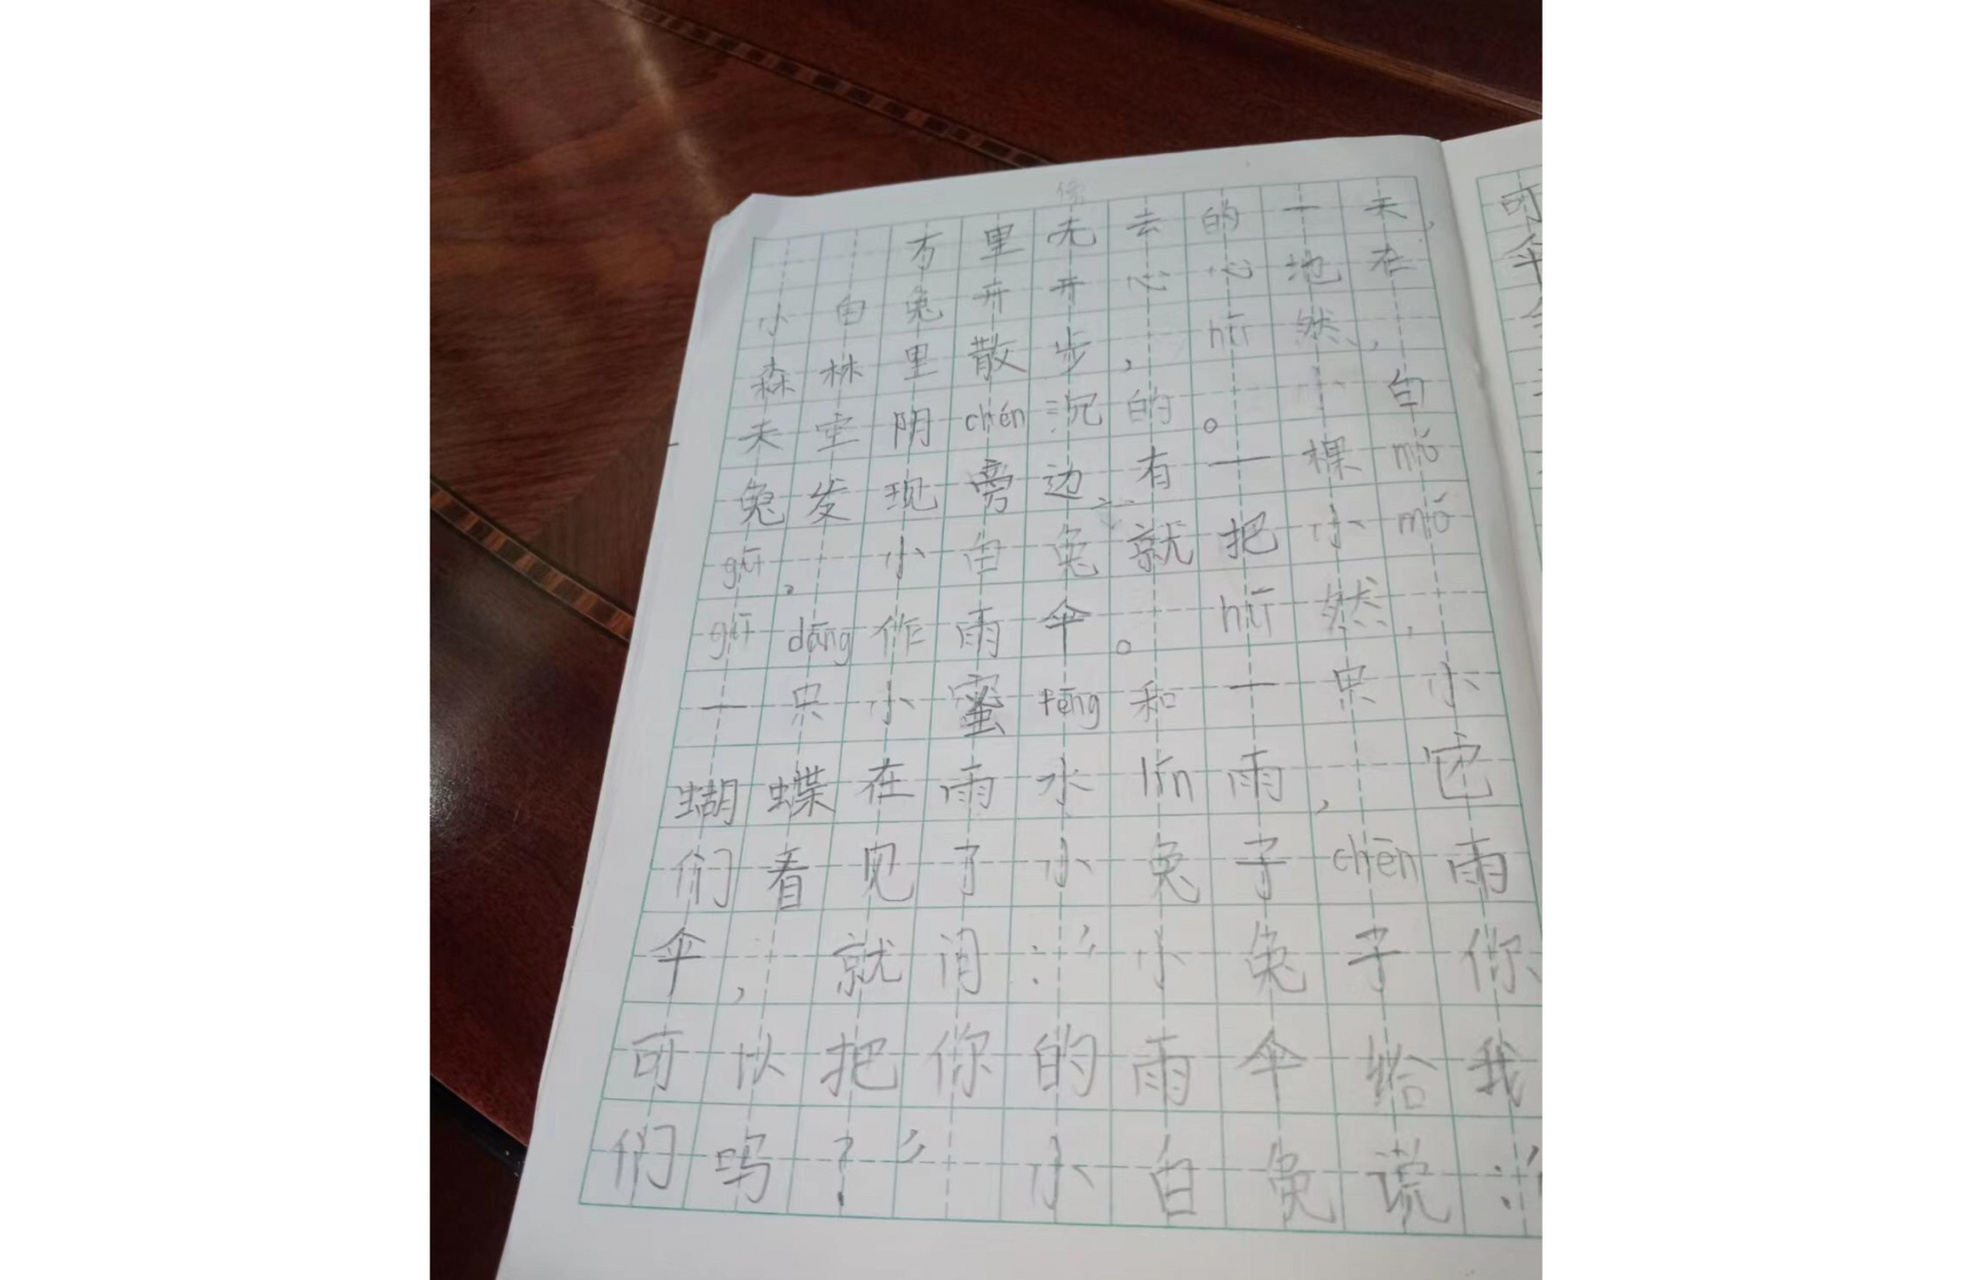 万里无云的一天,
小白兔开开心心地在
森林里散步,hū然,
天空阴chén沉的。小白
兔发现旁边有一棵mó
gū。小白兔就把小mó
gū dāng作雨伞。hū然,
一只小蜜fēng和一只小
蝴蝶在雨水lín雨,它
们看见了小兔子chēn雨
伞,就问:“小兔子你
可以把你的雨伞给我
们吗?”小白兔说:“
可
伞